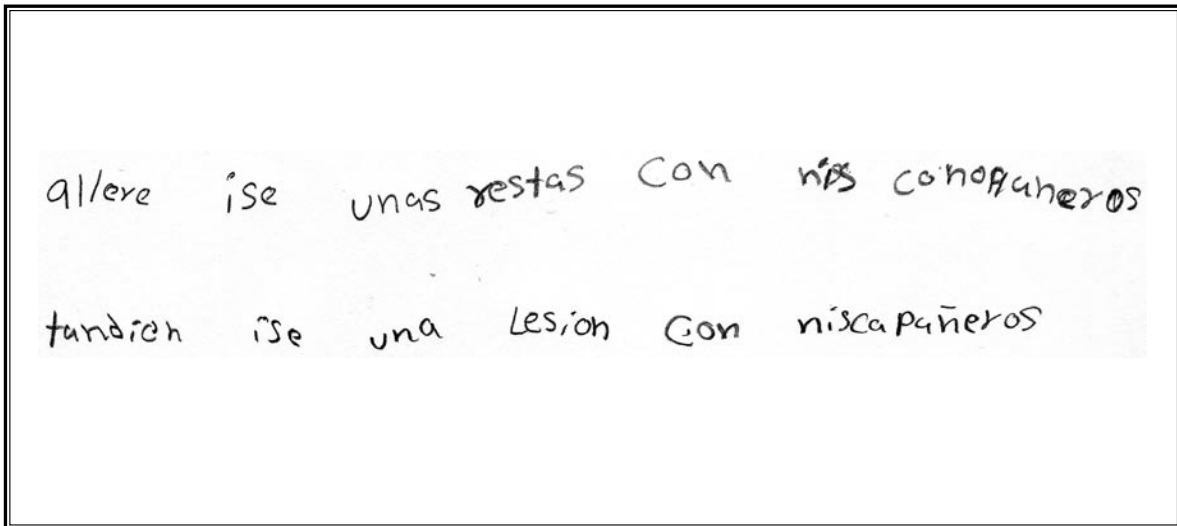 allere ise unas restas con nis conopaneros
tandien ise una Lesion Con niscapañeros